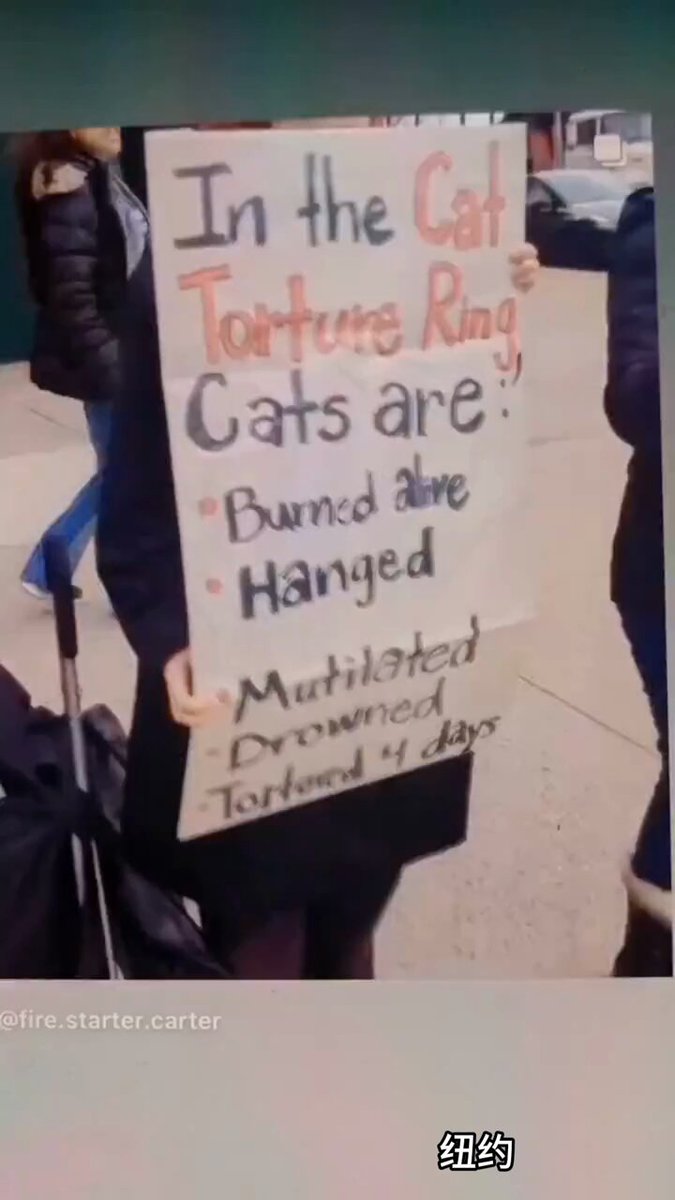 In the Cat
Torture Ring,
Cats are:
• Burned alive
• Hanged
• Mutilated
- Drowned
- Tortured 4 days
@fire.starter.carter
纽约